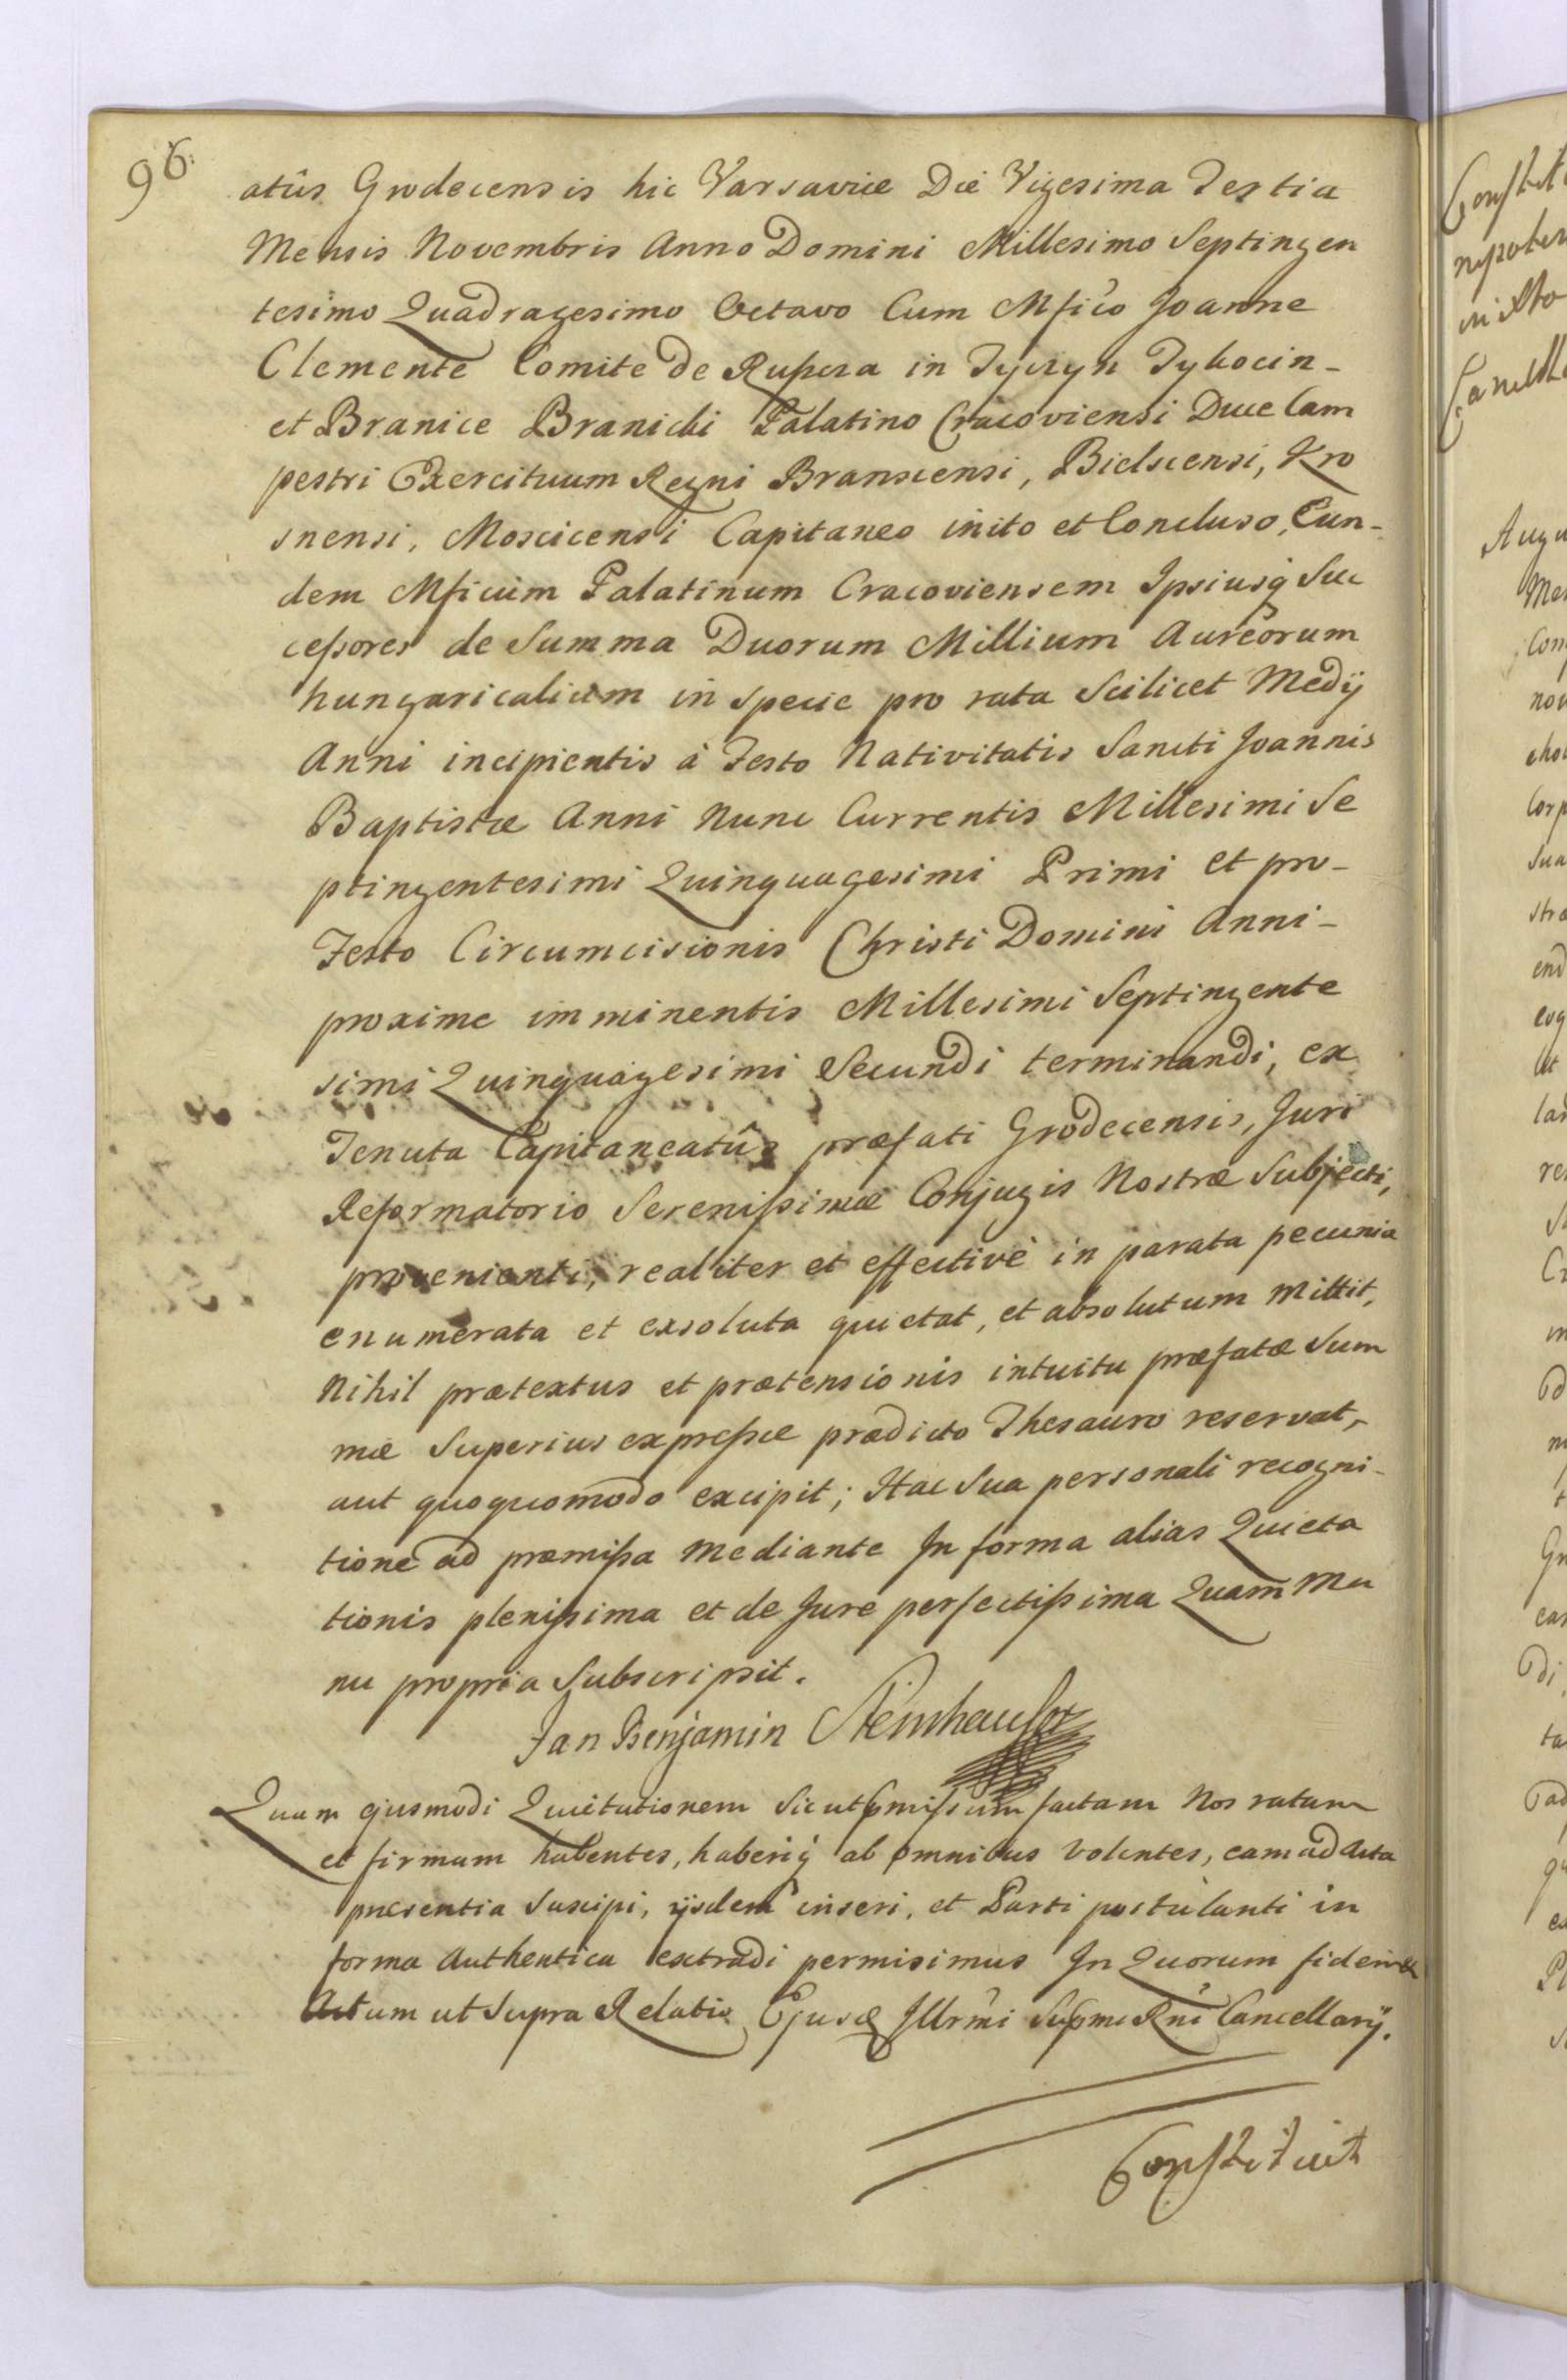 96.
atûs Grodecensis hic Varsaviæ Die Vigesima Tertia
Mensis Novembris Anno Domini Millesimo Septingen
tesimo Quadragesimo Octavo Cum Mfico Joanne
Clemente Comite de Ruszcza in Tyczyn Tykocin-
et Branice Branicki Palatino Cracoviensi Duce Cam
pestri Exercituum Regni Branscensi, Bielscensi, Kro
snensi, Moscicensi Capitaneo inito et Concluso, Eun-
dem Mficum Palatinum Cracoviensem Ipsiusq Suc
ceſsores de Summa Duorum Millium Aureorum
hungaricalium in specie pro rata Scilicet Medÿ
Anni incipientis à Festo Nativitatis Sancti Joannis
Baptistæ Anni Nunc Currentis Millesimi Se
ptingentesimi Quinquagesimi Primi et pro-
Festo Circumcisionis Christi Domini Anni-
proxime imminentis Millesimi Septingente
simi Quinquagesimi Secundi terminandi, ex
Tenuta Capitaneatûs præfati Grodecensis, Juri
Reformatorio Sereniſsimæ Conjugis Nostræ Subjecti,
provenienti, realiter et effectivè in parata pecunia
enumerata et exsoluta quietat, et absolutum Mittit,
Nihil prætextus et prætensionis intuitu præfatæ Sum
mæ Superius expreſsæ prædicto Thesauro reservat,
aut quoquomodo excipit; Hac Sua personali recogni-
tione ad præmiſsa Mediante In forma alias Quieta
tionis pleniſsima et de Jure perfectiſsima Quam Ma
nu propria Subscripsit.
Jan Benjamin Steinhauſer
Quam ejusmodi Quietationem Sicut factam Nos ratam
et firmam habentes, haberiq ab omnibus Volentes, eam ad Acta
præsentia Suscipi, ijsdem inseri, et Parti postulanti in
forma Authentica extradi permisimus In Quorum fidem
Actum ut Supra Relatio Ejusd Illrmi Supmi Rni Cancellarÿ.
Conſtituit
Conſtit
in
Augu
Con
nov
Corp
Sua
stra
end